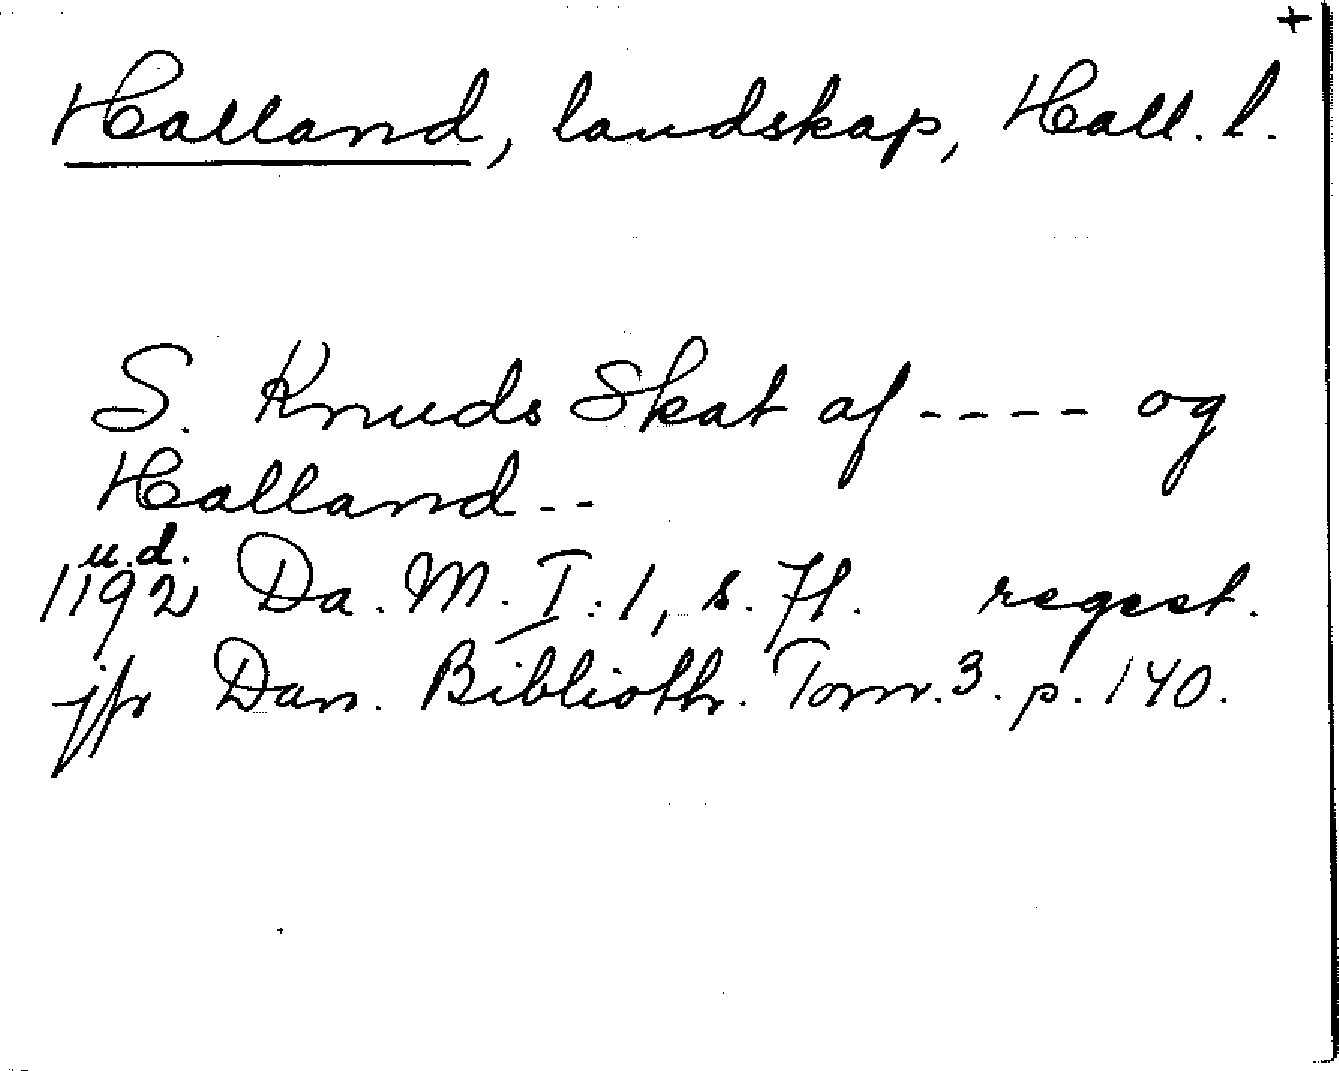 +
Halland, landskap, Hall. l.
S. Knuds Skat af ---- og
Halland --
u.d.
1192 Da. M. I:1, s. 71. regest.
jfr Dan. Biblioth. Tom. 3. p. 140.